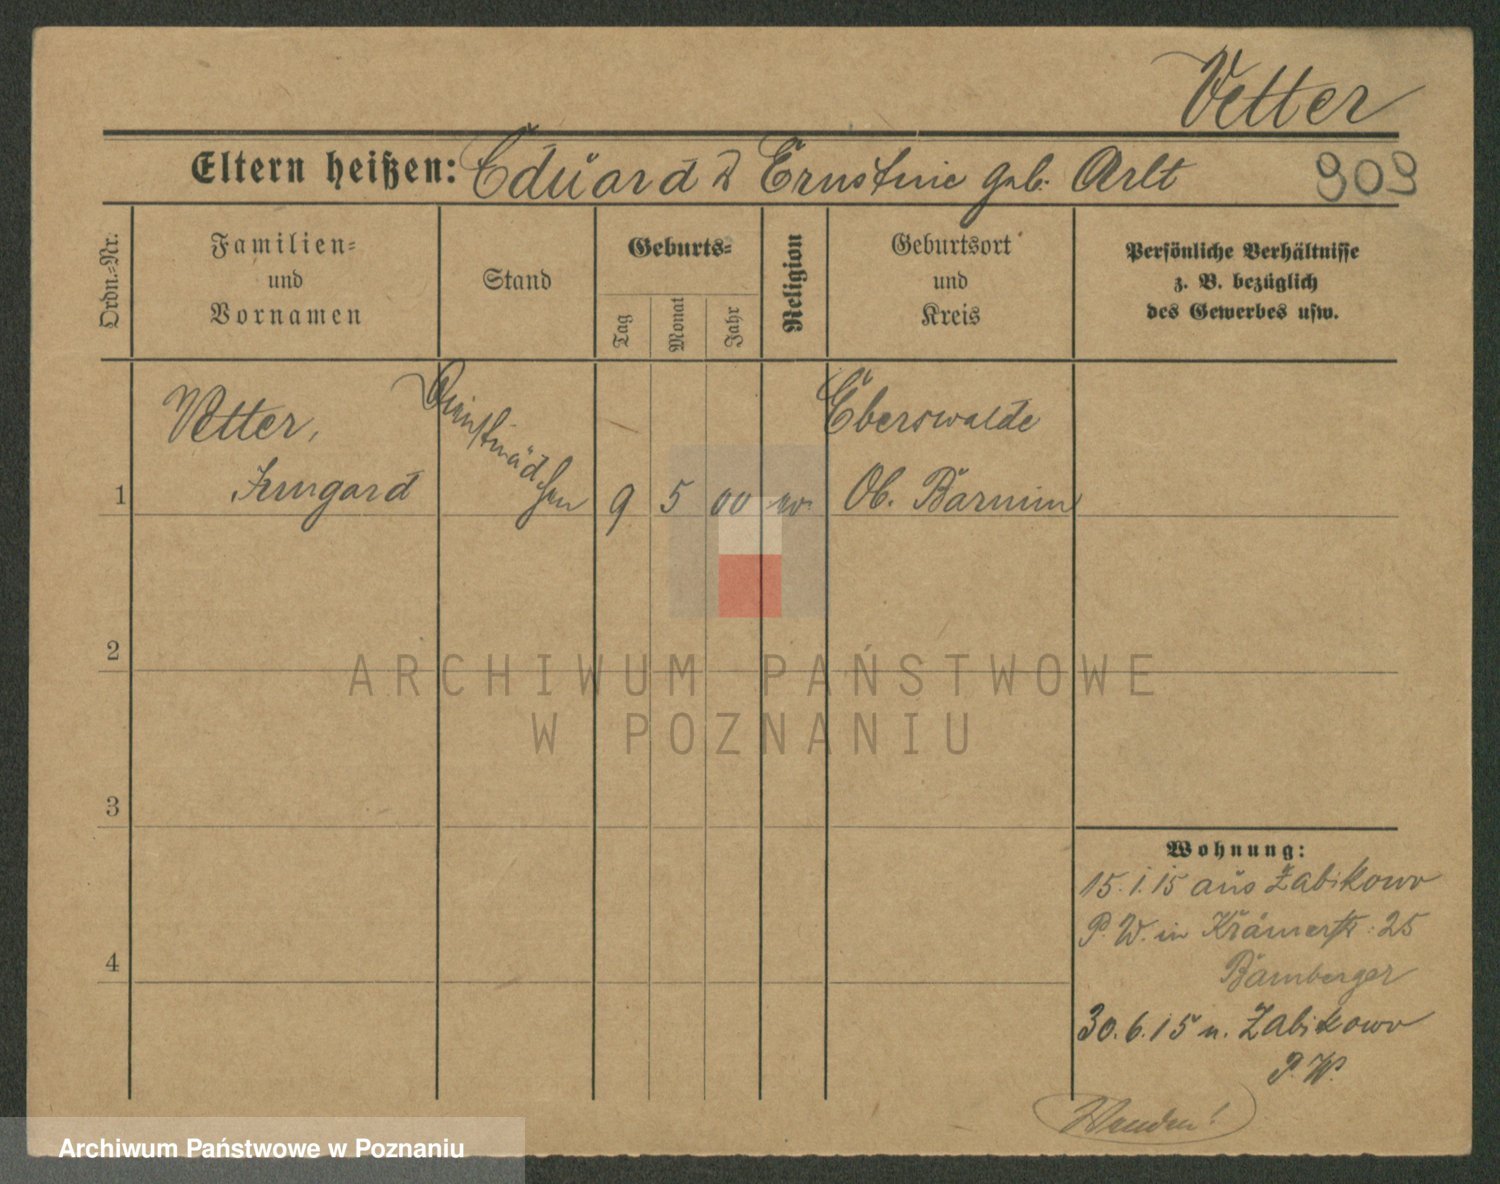 Vetter
Eltern heißen: Eduard u Ernstine geb. Arlt
909
Ordn.-Nr.
Familien-
und
Vornamen
Stand
Geburts-
Tag
Monat
Jahr
Religion
Geburtsort
und
Kreis
Persönliche Verhältnisse
z. B. bezüglich
des Gewerbes usw.
1
Vetter,
Irmgard
Dienstmädchen
9
5
00
ev.
Eberswalde
Ob. Barnim
2
3
4
Wohnung:
15.1.15 aus Zabikowo
P. W. in Krämerstr. 25
Bamberger
30.6.15 n. Zabikowo
P. W.
Wenden!
ARCHIWUM PAŃSTWOWE
W POZNANIU
Archiwum Państwowe w Poznaniu